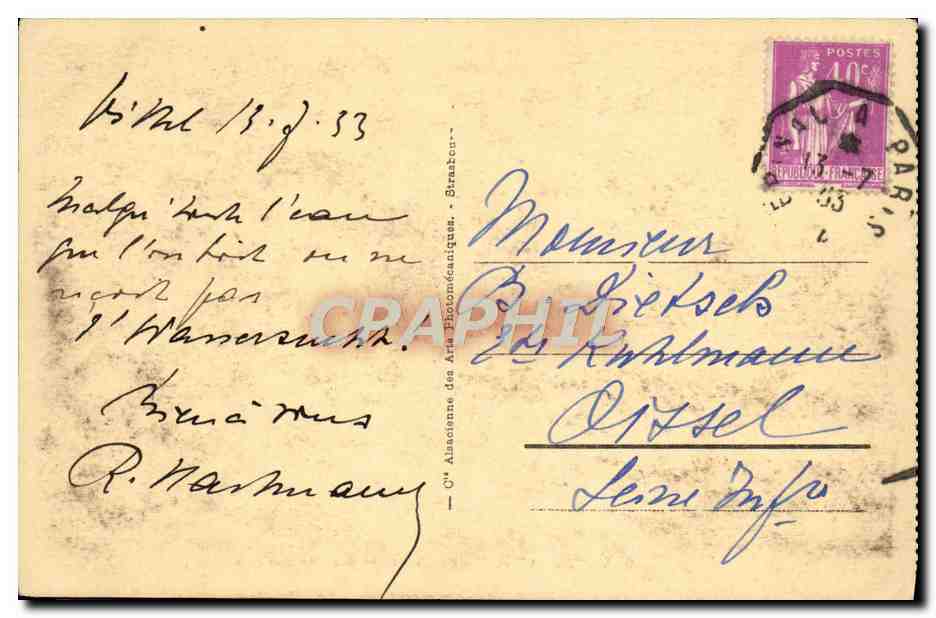 Vittel 13.7.33
Malgré toute l'eau
que l'on boit on ne
reçoit pas
l'Wassersucht!
Bien à vous
R. Hartmann
— Cie Alsacienne des Arts Photomécaniques. - Strasbourg
CRAPHIL
POSTES
40 c
REPUBLIQUE FRANÇAISE
EPINAL A PARIS
13 -7
33
Monsieur
B. Dietsch
Ets Kuhlmann
Oissel
Seine Infre